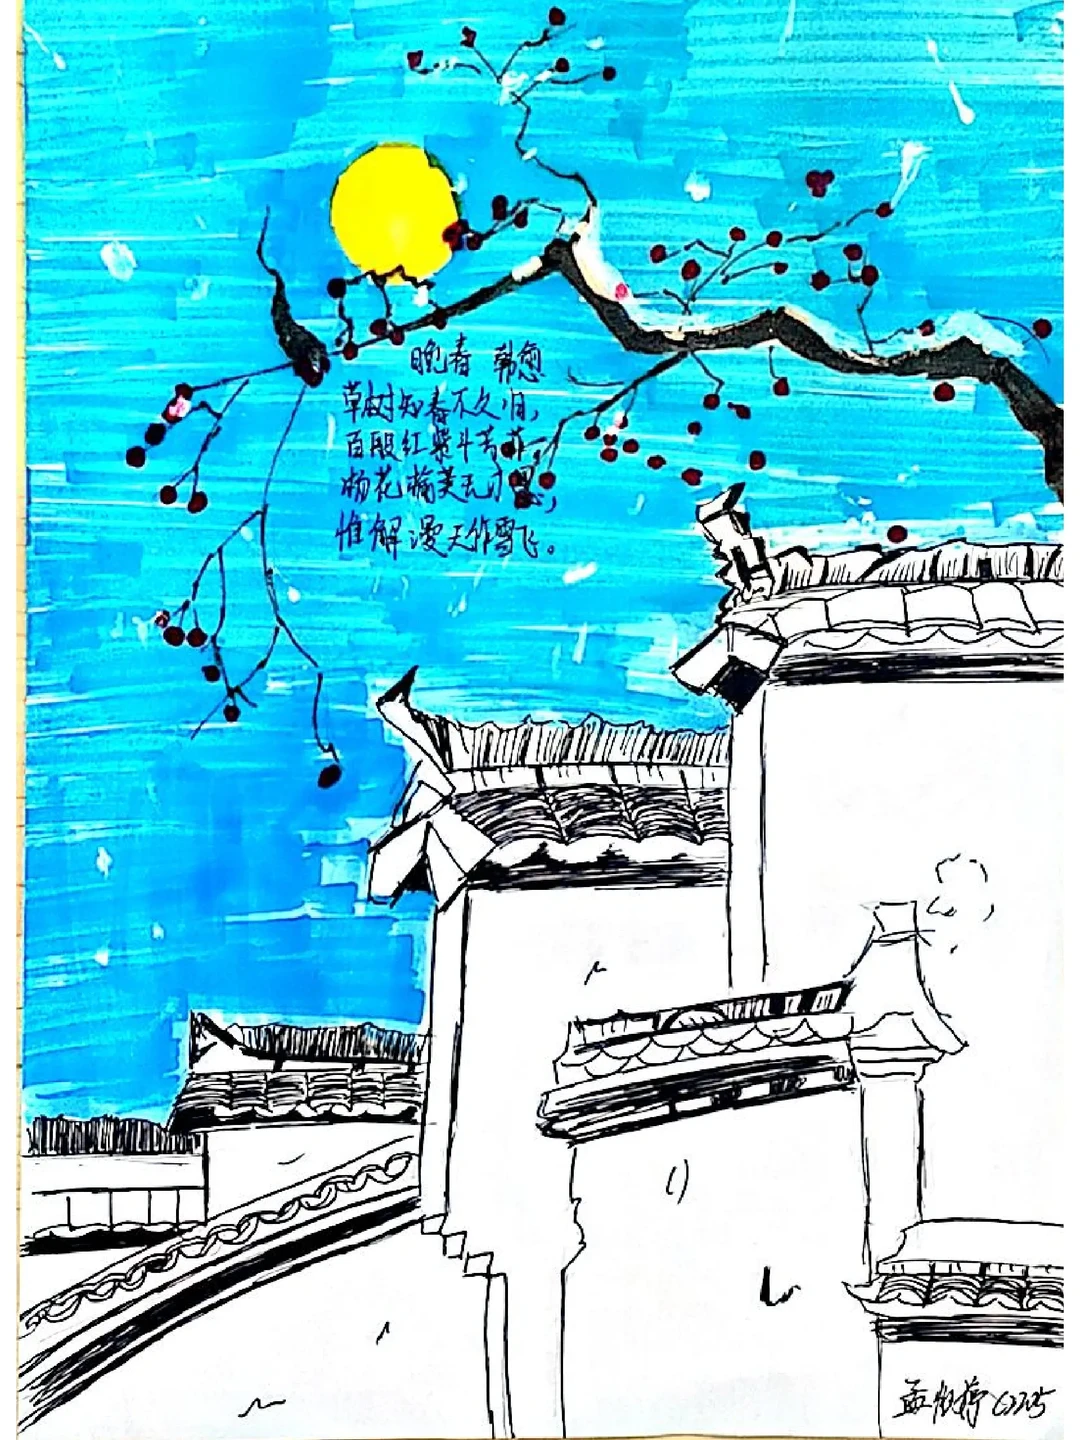 晚春 韩愈
草树知春不久归,
百般红紫斗芳菲,
杨花榆荚无才思,
惟解漫天作雪飞。
孟 婷